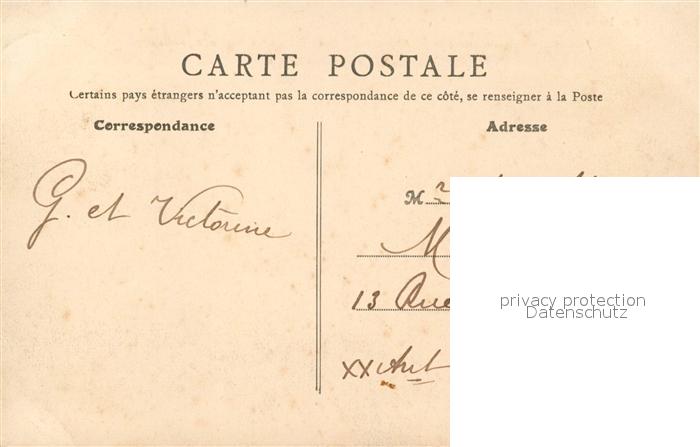 CARTE POSTALE
Certains pays étrangers n'acceptant pas la correspondance de ce côté, se renseigner à la Poste
Correspondance
Adresse
G. et Victorine
Mr
M
13 Rue
XX Art
privacy protection
Datenschutz